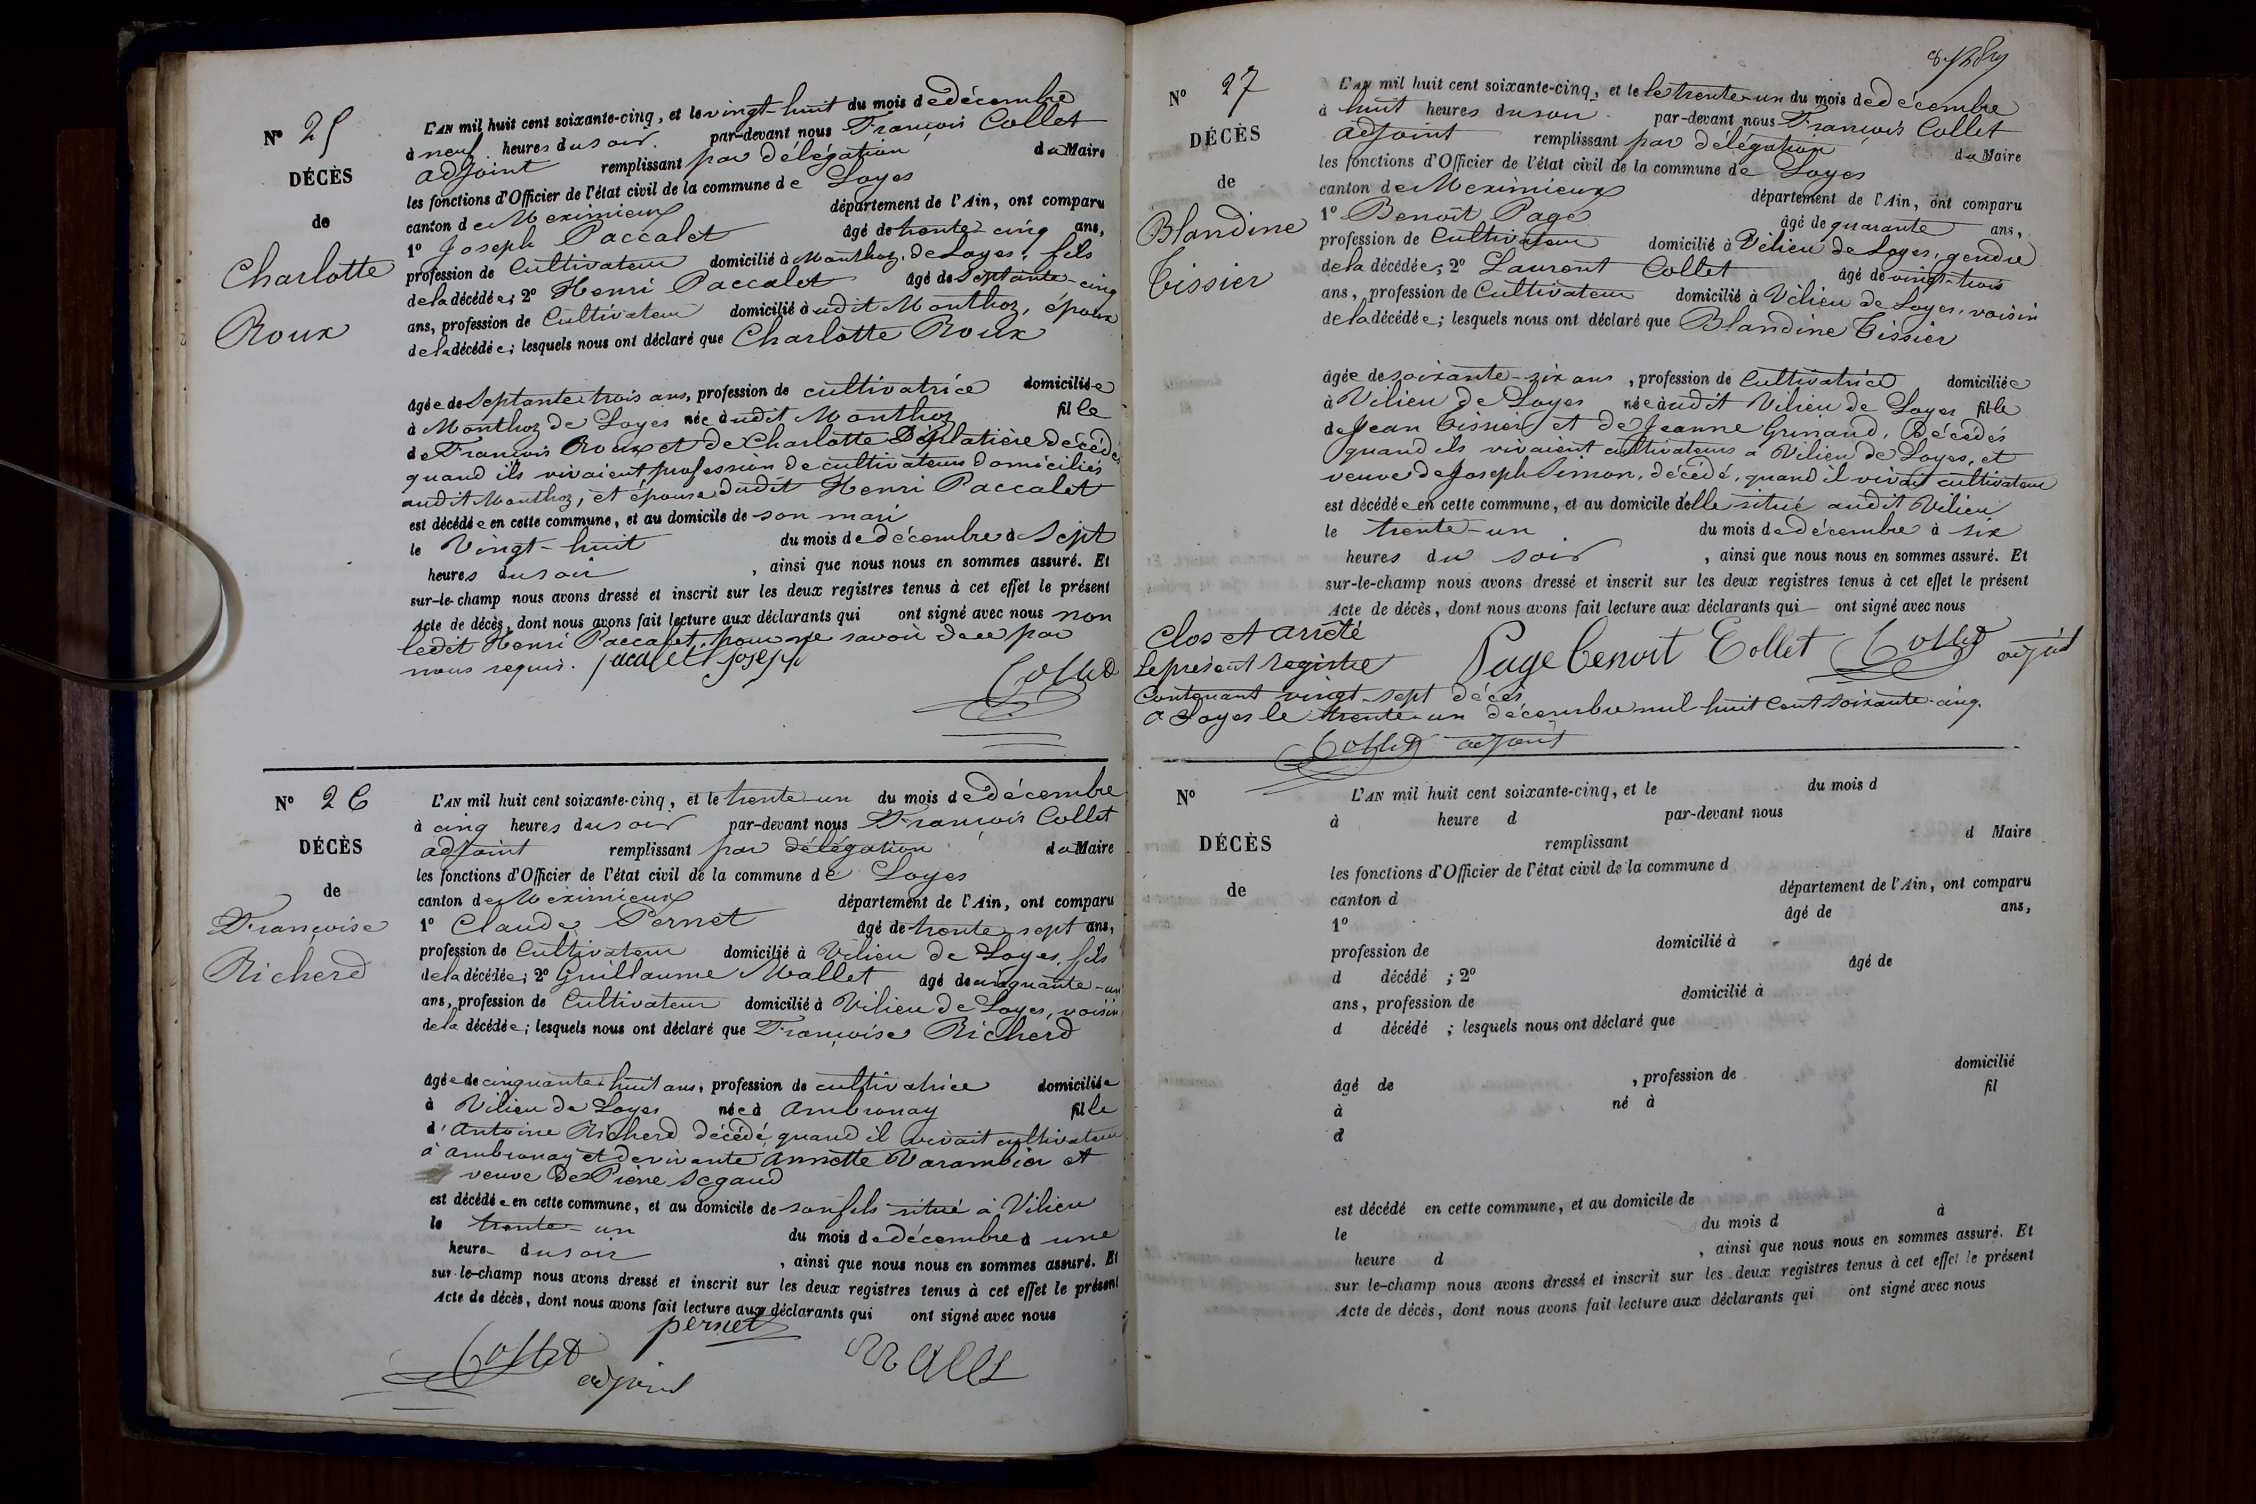 Nº 25
DÉCÈS
de
Charlotte
Roux
L'AN mil huit cent soixante-cinq, et le vingt-huit du mois de décembre
à neuf heures du soir par-devant nous François Collet
adjoint remplissant par délégation du Maire
les fonctions d'Officier de l'état civil de la commune de Loyes
canton de Meximieux département de l'Ain, ont comparu
1º Joseph Paccalet âgé de trente-cinq ans,
profession de Cultivateur domicilié à Monthoz, de Loyes, fils
de la décédée; 2º Henri Paccalet âgé de Septante-cinq
ans, profession de Cultivateur domicilié à udit Monthoz, époux
de la décédée; lesquels nous ont déclaré que Charlotte Roux
âgée de Septante trois ans, profession de cultivatrice domiciliée
à Monthoz de Loyes née à udit Monthoz fille
de François Roux et de Charlotte Déplatière décédés
quand ils vivaient profession de cultivateurs domiciliés
audit Monthoz, et épouse dudit Henri Paccalet
est décédée en cette commune, et au domicile de son mari
le Vingt-huit du mois de décembre à Sept
heures du soir, ainsi que nous nous en sommes assuré. Et
sur-le-champ nous avons dressé et inscrit sur les deux registres tenus à cet effet le présent
Acte de décès, dont nous avons fait lecture aux déclarants qui ont signé avec nous non
ledit Henri Paccalet, pour ne savoir de ce par
nous requis. pacalet joseph
Collet
Nº 26
DÉCÈS
de
Françoise
Richerd
L'AN mil huit cent soixante-cinq, et le trente-un du mois de décembre
à cinq heures du soir par-devant nous François Collet
adjoint remplissant par délégation du Maire
les fonctions d'Officier de l'état civil de la commune de Loyes
canton de Meximieux département de l'Ain, ont comparu
1º Claude Pernet âgé de trente-sept ans,
profession de Cultivateur domicilié à Vilieu de Loyes, fils
de la décédée; 2º Guillaume Mallet âgé de cinquante-un
ans, profession de Cultivateur domicilié à Vilieu de Loyes, voisin
de la décédée; lesquels nous ont déclaré que Françoise Richerd
âgée de cinquante-huit ans, profession de cultivatrice domiciliée
à Vilieu de Loyes née à Ambronay fille
d'Antoine Richerd décédé quand il vivait cultivateur
à Ambronay et de vivante Annette Varambier et
veuve de Pierre Segaud
est décédée en cette commune, et au domicile de son fils situé à Vilieu
le trente-un du mois de décembre à une
heure du soir, ainsi que nous nous en sommes assuré. Et
sur-le-champ nous avons dressé et inscrit sur les deux registres tenus à cet effet le présent
Acte de décès, dont nous avons fait lecture aux déclarants qui ont signé avec nous
pernet
Collet
adjoint
Nº 27
DÉCÈS
de
Blandine
Tissier
L'AN mil huit cent soixante-cinq, et le le trente-un du mois de décembre
à huit heures du soir par-devant nous François Collet
adjoint remplissant par délégation du Maire
les fonctions d'Officier de l'état civil de la commune de Loyes
canton de Meximieux département de l'Ain, ont comparu
1º Benoît Page âgé de quarante ans,
profession de Cultivateur domicilié à Vilieu de Loyes, gendre
de la décédée; 2º Laurent Collet âgé de vingt-trois
ans, profession de Cultivateur domicilié à Vilieu de Loyes, voisin
de la décédée; lesquels nous ont déclaré que Blandine Tissier
âgée de soixante-six ans, profession de Cultivatrice domiciliée
à Vilieu de Loyes née à udit Vilieu de Loyes fille
de Jean Tissier et de Jeanne Grinand, Décédés
quand ils vivaient cultivateurs à Vilieu de Loyes, et
veuve de Joseph Simon, décédé, quand il vivait cultivateur
est décédée en cette commune, et au domicile d'elle situé audit Vilieu
le trente-un du mois de décembre à six
heures du soir, ainsi que nous nous en sommes assuré. Et
sur-le-champ nous avons dressé et inscrit sur les deux registres tenus à cet effet le présent
Acte de décès, dont nous avons fait lecture aux déclarants qui ont signé avec nous
Page benoit Collet Collet adjoint
Clos et arrêté
Le présent Registre
Contenant vingt-sept décès
à Loyes le trente-un décembre mil huit cent soixante-cinq.
Collet adjoint
Nº
DÉCÈS
de
L'AN mil huit cent soixante-cinq, et le du mois d
à heure d par-devant nous
remplissant d Maire
les fonctions d'Officier de l'état civil de la commune d
canton d département de l'Ain, ont comparu
1º âgé de ans,
profession de domicilié à
d décédé ; 2º âgé de
ans, profession de domicilié à
d décédé ; lesquels nous ont déclaré que
âgé de , profession de domicilié
à né à fil
d
est décédé en cette commune, et au domicile de
le du mois d à
heure d , ainsi que nous nous en sommes assuré. Et
sur-le-champ nous avons dressé et inscrit sur les deux registres tenus à cet effet le présent
Acte de décès, dont nous avons fait lecture aux déclarants qui ont signé avec nous